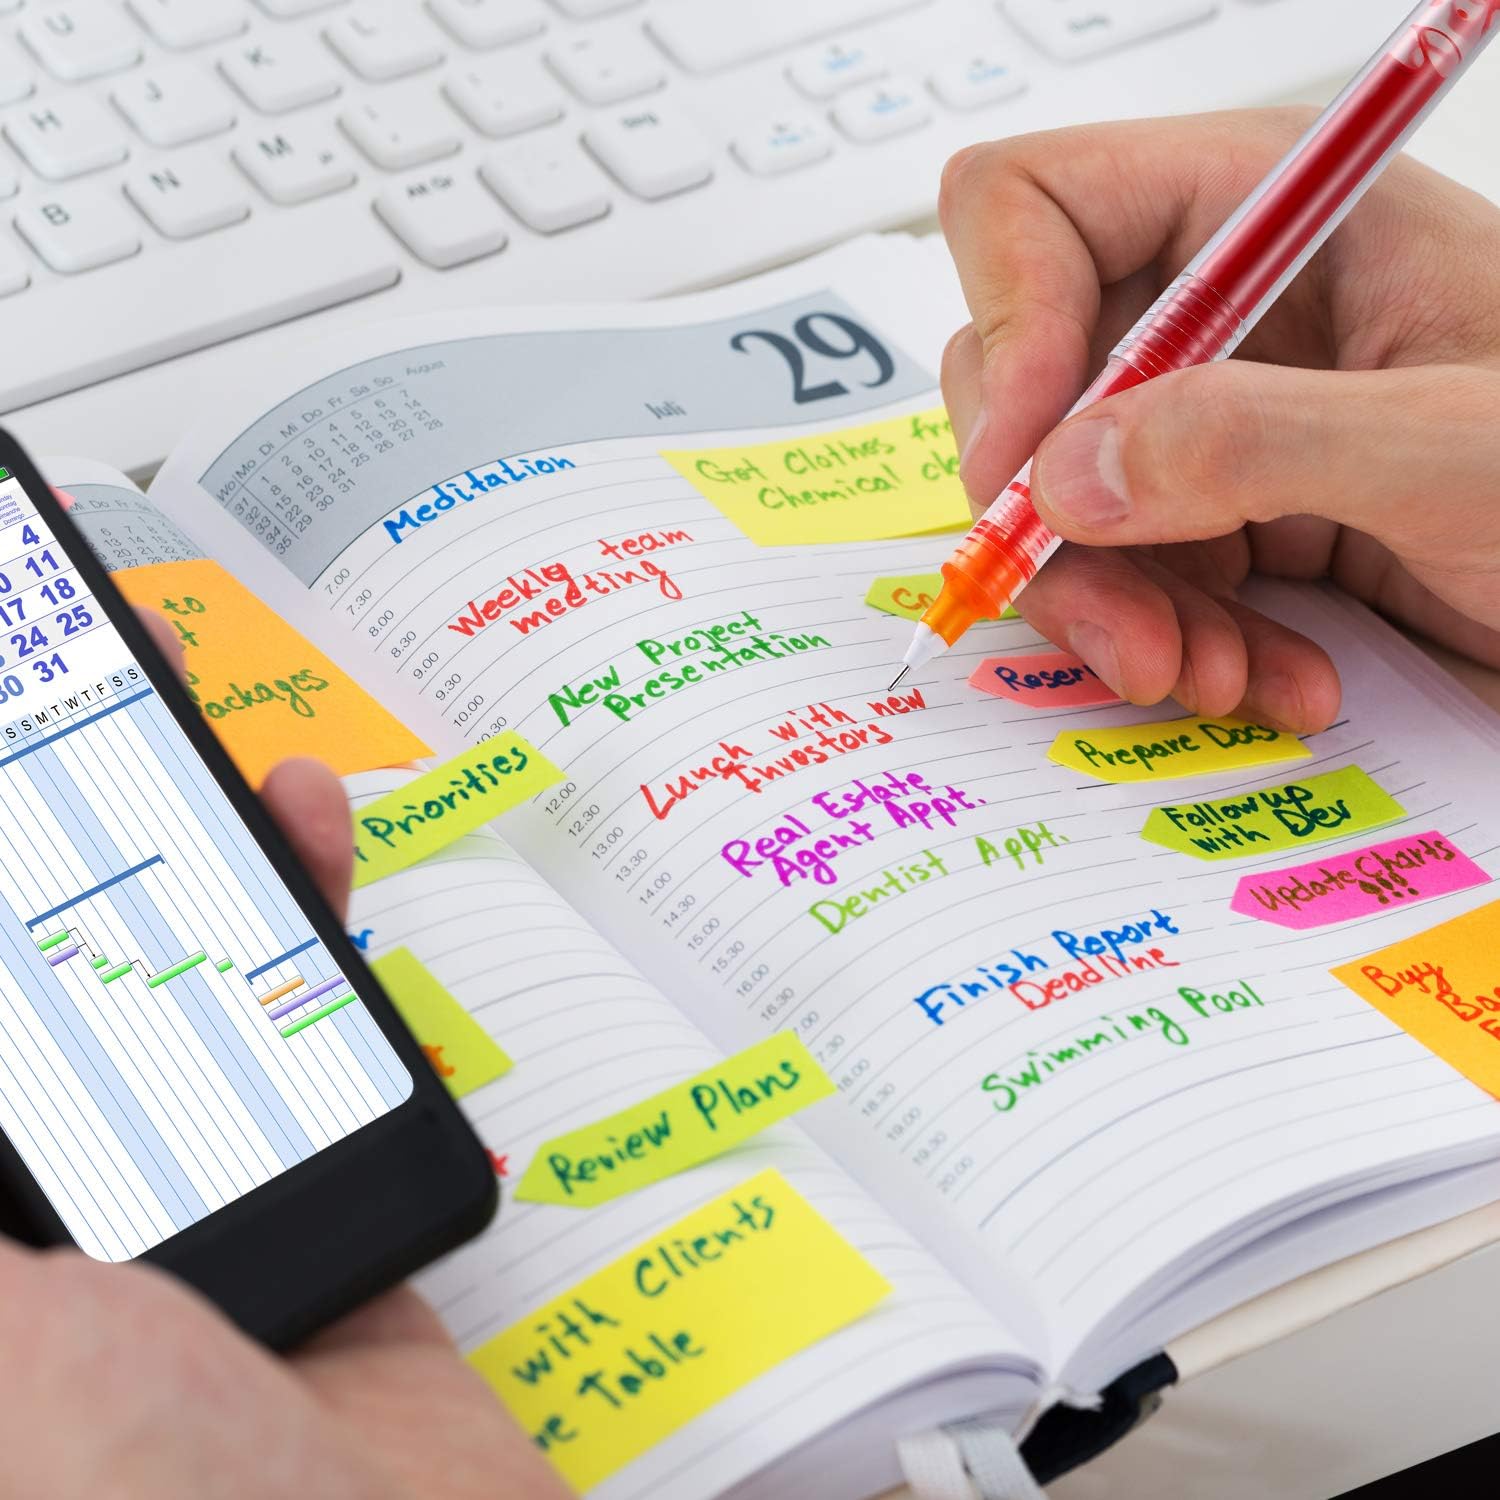 U
H
J
K
L
B
N
M
Alt Gr
29
Juli
August
Wo Mo Di Mi Do Fr Sa So
31 1 2 3 4 5 6 7
32 8 9 10 11 12 13 14
33 15 16 17 18 19 20 21
34 22 23 24 25 26 27 28
35 29 30 31
7.00
7.30
8.00
8.30
9.00
9.30
10.00
10.30
12.00
12.30
13.00
13.30
14.00
14.30
15.00
15.30
16.00
16.30
18.00
18.30
19.00
19.30
20.00
Meditation
Weekly team
meeting
New Project
Presentation
Lunch with new
Investors
Real Estate
Agent Appt.
Dentist Appt.
Finish Report
Deadline
Swimming Pool
Get Clothes
Chemical
Prepare Docs
Follow up
with Dev
Update Charts
!!!
Buy
to
ackages
Priorities
Review Plans
with Clients
Table
4
11
17 18
24 25
30 31
S S M T W T F S S